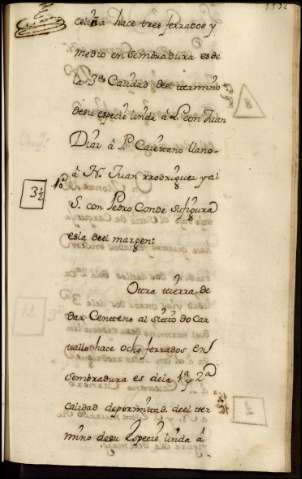 celnra hace tres ferrados y
medio en sembradura es de
la 3ª Calidad del termino
desu especie linda á L. con Juan
Diaz á P. Cayetano llano-
á N. Juan Rrodriguez y al
S. con Pedro Conde su figura
es la del margen:
3½
Ottra tierra de
dar Centeno al sittio do Car
vallo hace ocho ferrados en
sembradura es dela 1ª y 2ª
calidad depormittad del ter
mino desu Especie linda á